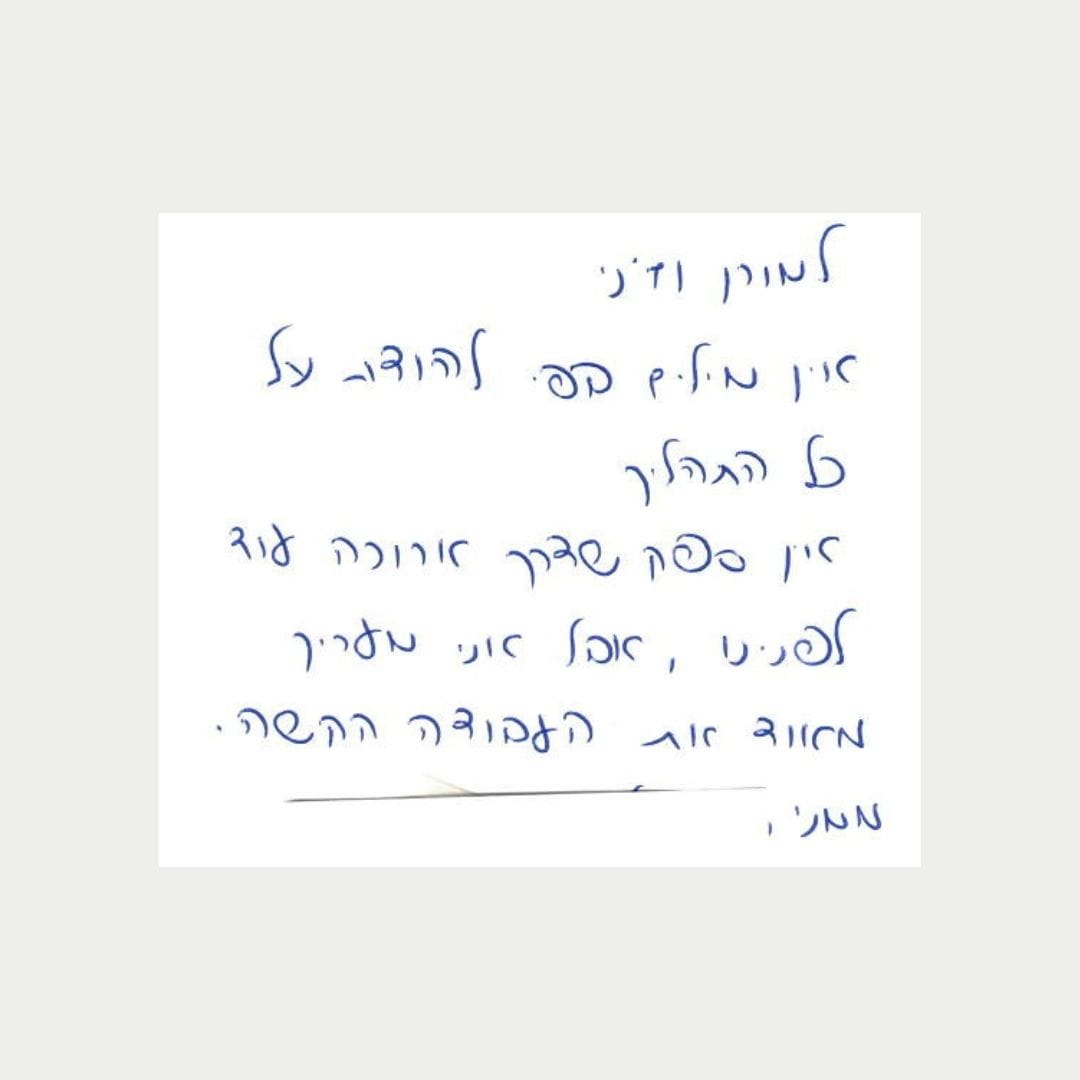 למורן וד'ני
אין מילים בפי להודות על
כל התהליך
אין ספק שדרך ארוכה עוד
לפנינו, אבל אני מעריך
מאוד את העבודה הקשה.
ממני,